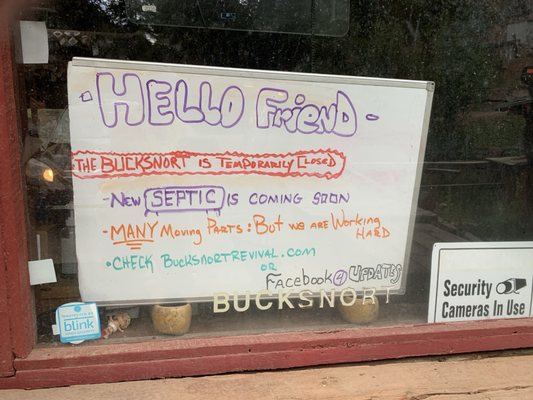 - HELLO Friend -
THE BUCKSNORT IS TEMPORARILY CLOSED
- NEW SEPTIC IS COMING SOON
- MANY MOVING PARTS: BUT WE ARE WORKING
HARD
• CHECK BUCKSNORTREVIVAL.COM
OR
FACEBOOK 4 UPDATES
BUCKSNORT
blink
Security
Cameras in Use